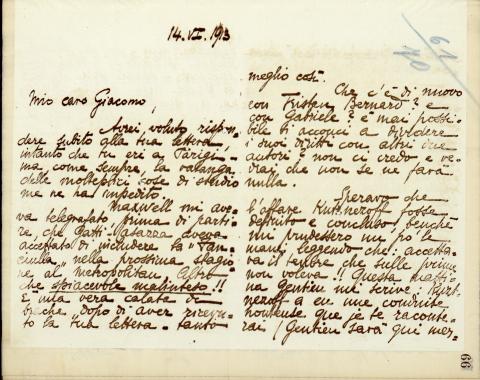 14.VI.1913
61
40
mio caro Giacomo,
Avrei voluto rispon-
dere subito alla tua lettera,
intanto che tu eri a Parigi-
ma, come sempre, la valanga
delle molteplici cose di studio
me ne ha impedito.
Maxwell mi ave-
va telegrafato prima di parti-
re, che Gatti-Casazza aveva
accettato di includere la "Fan-
ciulla" nella prossima stagio-
ne al metropolitan. Altro
che spiacevole malinteso!!
È una vera calata di
brache dopo di aver ricevu-
to la tua lettera. tanto
meglio così.
Che c'è di nuovo
con Tristan Bernard? e
con Gabriele? è mai possi-
bile ti acconci a dividere
i suoi diritti con altri due
autori? non ci credo e ve-
drai che non se ne farà
nulla.
Speravo che
l'affare fosse
definito e concluso, benché
mi prudessero un po' le
mani, leggendo che: accetta-
va il tenore che sulle prime
non voleva!! Questa matti-
na Gentien mi scrive:
a eu une conduite
honteuse que je te raconte-
rai (Gentien sarà qui mer-
99